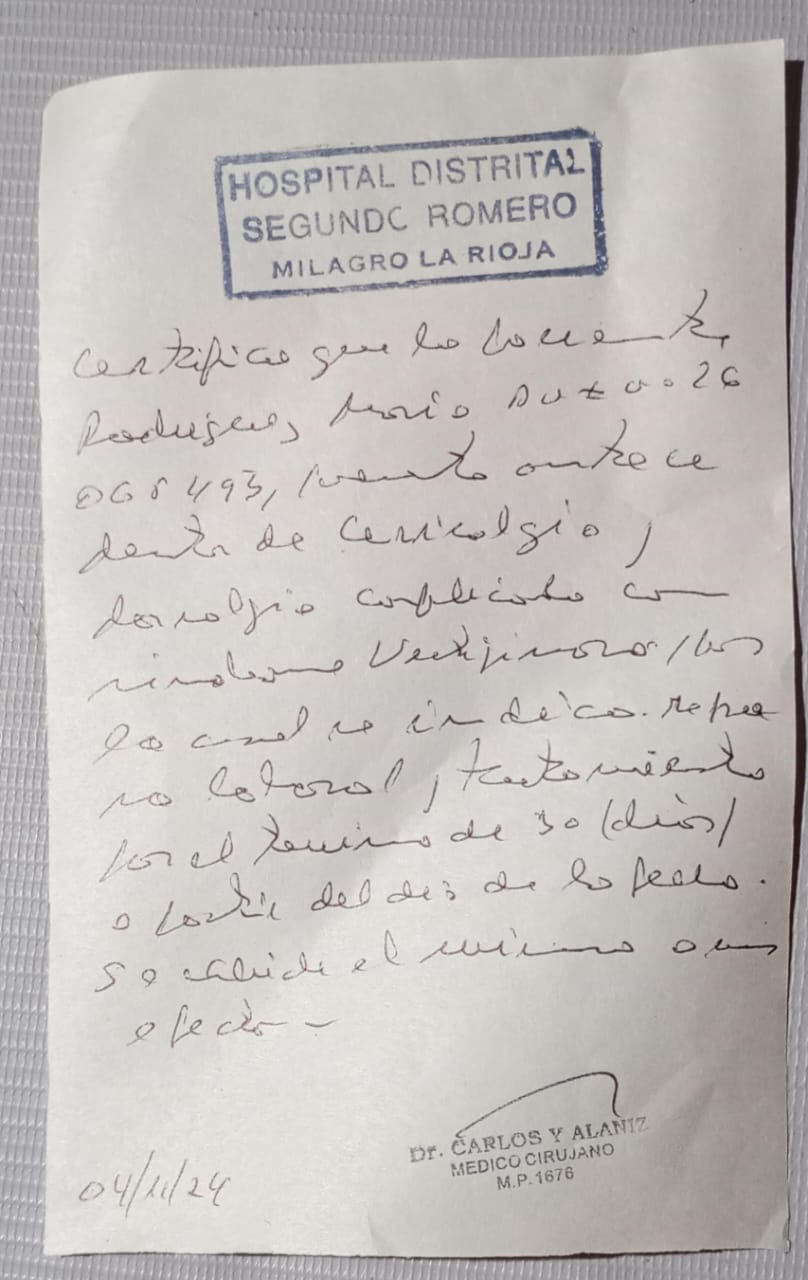 HOSPITAL DISTRITAL
SEGUNDO ROMERO
MILAGRO LA RIOJA
Certifico que la paciente
Rodriguez, Maria 26
068493, presenta antece
dente de Cervicalgia,
dorsalgia complicada con
sindrome Vertiginoso, por
lo cual se indica. repo
so laboral, tratamiento
por el termino de 30 (dias)
a partir del dia de la fecha.
Se extiende el mismo a sus
efectos -
04/11/24
Dr. CARLOS Y ALAÑIZ
MEDICO CIRUJANO
M.P. 1676